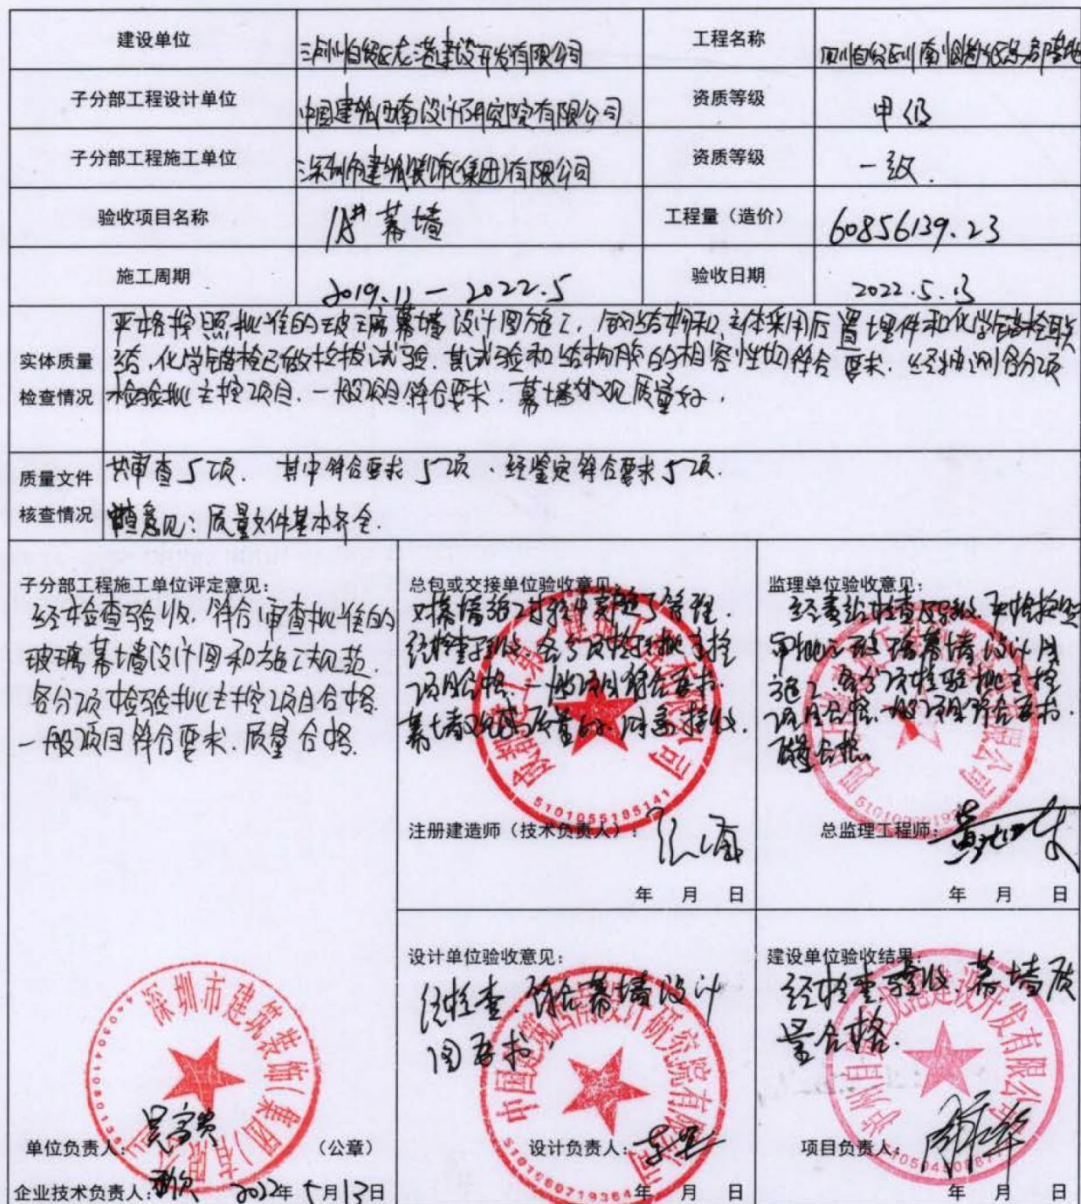 建设单位
工程名称
子分部工程设计单位 中国建筑西南设计研究院有限公司
资质等级 甲级
子分部工程施工单位 深圳市建筑装饰(集团)有限公司
资质等级 一级.
验收项目名称 1A# 幕墙
工程量(造价) 60856139.23
施工周期 2019.11 — 2022.5
验收日期 2022.5.13
实体质量
检查情况
严格按照批准的玻璃幕墙设计图施工, 主体采用后置埋件和化学锚栓联
结, 化学锚栓已做拉拔试验. 其试验和结构胶的相容性均符合要求. 经抽测各分项
检验批主控项目. 一般项目符合要求. 幕墙外观质量好.
质量文件
核查情况
共审查5项. 其中符合要求5项. 经鉴定符合要求5项.
审查意见: 质量文件基本齐全.
子分部工程施工单位评定意见:
经检查验收, 符合审查批准的
玻璃幕墙设计图和施工规范.
各分项检验批主控项目合格
一般项目符合要求. 质量合格.
深圳市建筑装饰(集团)有限公司
单位负责人: (公章)
企业技术负责人: 2022年5月13日
总包或交接单位验收意见:
对幕墙施工过程中进行了管理.
经检查验收, 各分项检验批主控
项目合格. 一般项目符合要求.
幕墙观感质量好. 同意验收.
5101055185141
注册建造师(技术负责人):
年 月 日
监理单位验收意见:
各分项检验批主控
项目合格. 一般项目符合要求.
质量合格.
总监理工程师:
年 月 日
设计单位验收意见:
经检查, 符合幕墙设计
图要求.
中国建筑西南设计研究院有限公司
设计负责人:
年 月 日
建设单位验收结果:
经检查验收, 幕墙质
量合格.
项目负责人:
年 月 日